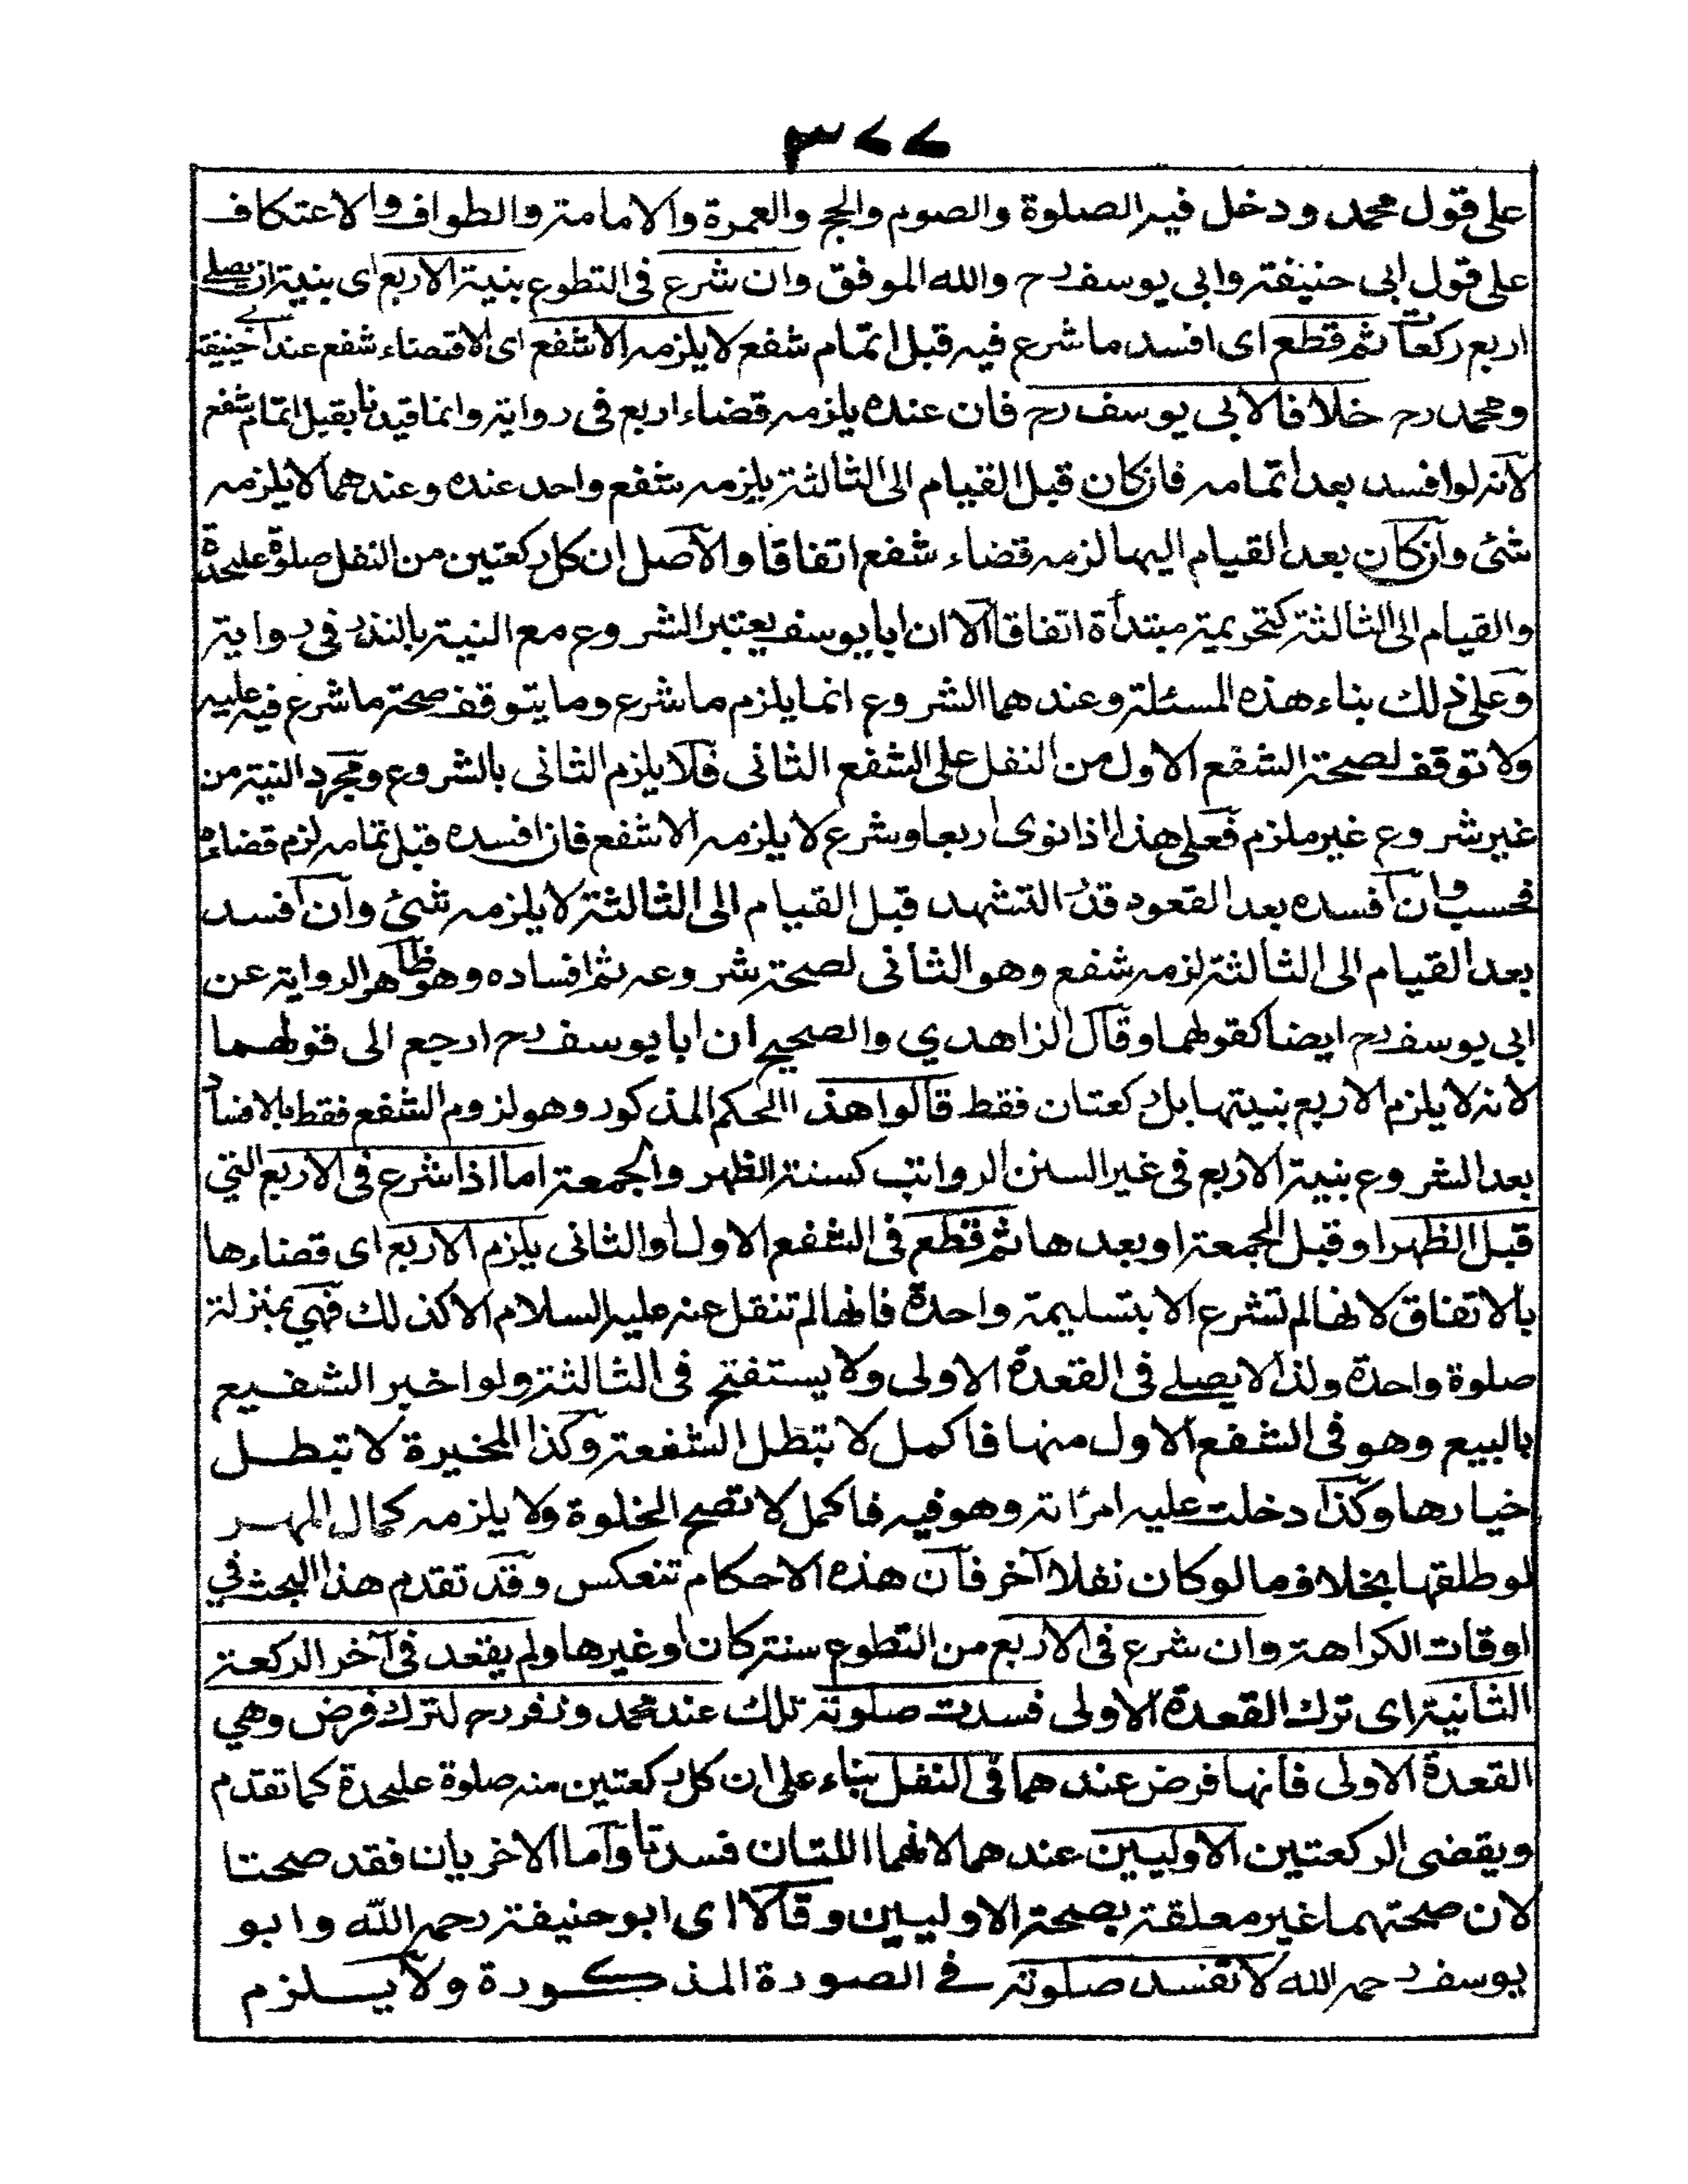 ٣٧٧
على قول محمد ودخل فيه الصلوة والصوم والحج والعمرة والامامة والطواف والاعتكاف
على قول ابى حنيفة وابى يوسف رح والله الموفق وان شرع فى التطوع بنية الاربع اى بنية ان يصلى
اربع ركعات ثم قطع اى افسد ما شرع فيه قبل اتمام شفع لا يلزمه الا شفع اى الا قضاء شفع عند ابى حنيفة
ومحمد رح خلافا لابى يوسف رح فان عنده يلزمه قضاء اربع فى رواية وانما قيدنا بقبل اتمام شفع
لانه لو افسد بعد اتمامه فان كان قبل القيام الى الثالثة يلزمه شفع واحد عنده وعندهما لا يلزمه
شئ وان كان بعد القيام اليها لزمه قضاء شفع اتفاقا والاصل ان كل ركعتين من النفل صلوة عليحدة
والقيام الى الثالثة كتحريمة مبتدأة اتفاقا الا ان ابا يوسف يعتبر الشروع مع النية بالنذر فى رواية
وعلى ذلك بناء هذه المسئلة وعندهما الشروع انما يلزم ما شرع وما يتوقف صحة ما شرع فيه عليه
ولا توقف لصحة الشفع الاول من النفل على الشفع الثانى فلا يلزم الثانى بالشروع ومجرد النية من
غير شروع غير ملزم فعلى هذا اذا نوى اربعا وشرع لا يلزمه الا شفع فان افسده قبل تمامه لزم قضاءه
فحسب وان افسده بعد القعود قدر التشهد قبل القيام الى الثالثة لا يلزمه شئ وان افسد
بعد القيام الى الثالثة لزمه شفع وهو الثانى لصحة شروعه ثم افساده وهو ظاهر الرواية عن
ابى يوسف رح ايضا كقولهما وقال الزاهدي والصحيح ان ابا يوسف رح ارجع الى قولهما
لانه لا يلزم الاربع بنيتها بل ركعتان فقط قالوا هذا الحكم المذكور وهو لزوم الشفع فقط بالافساد
بعد الشروع بنية الاربع فى غير السنن الرواتب كسنة الظهر والجمعة اما اذا شرع فى الاربع التي
قبل الظهر او قبل الجمعة او بعدها ثم قطع فى الشفع الاول او الثانى يلزم الاربع اى قضاءها
بالاتفاق لانها لم تشرع الا بتسليمة واحدة فانها لم تنقل عنه عليه السلام الا كذلك فهي بمنزلة
صلوة واحدة ولذا لا يصلى فى القعدة الاولى ولا يستفتح فى الثالثة ولو اخبر الشفيع
بالبيع وهو فى الشفع الاول منها فاكمل لا تبطل الشفعة وكذا المخيرة لا تبطل
خيارها وكذا دخلت عليه امرأته وهو فيه فاكمل لا تصح الخلوة ولا يلزمه كمال المهر
لو طلقها بخلاف ما لو كان نفلا آخر فان هذه الاحكام تنعكس وقد تقدم هذا البحث في
اوقات الكراهة وان شرع فى الاربع من التطوع سنة كان او غيرها ولم يقعد فى آخر الركعة
الثانية اى ترك القعدة الاولى فسدت صلوته تلك عند محمد وزفر رح لترك فرض وهي
القعدة الاولى فانها فرض عندهما فى النفل بناء على ان كل ركعتين منه صلوة عليحدة كما تقدم
ويقضى الركعتين الاوليين عندهما لانهما اللتان فسدتا واما الاخريان فقد صحتا
لان صحتهما غير معلقة بصحة الاوليين وقالا اى ابو حنيفة رحمه الله وابو
يوسف رحمه الله لا تفسد صلوته فى الصورة المذكورة ولا يلزم